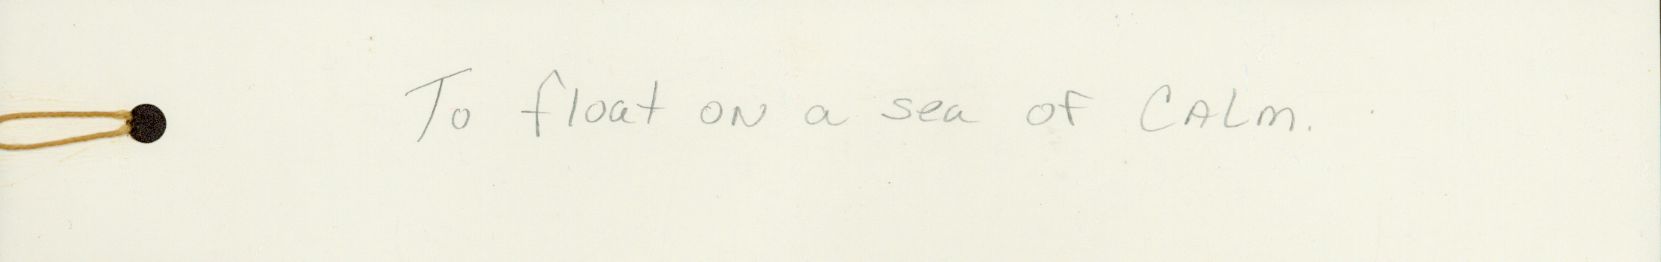 To float ON a sea of CALm.